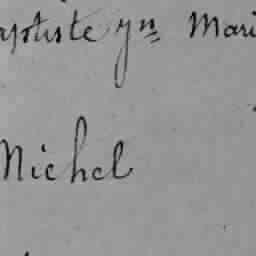 aptiste yn Mari
Michel